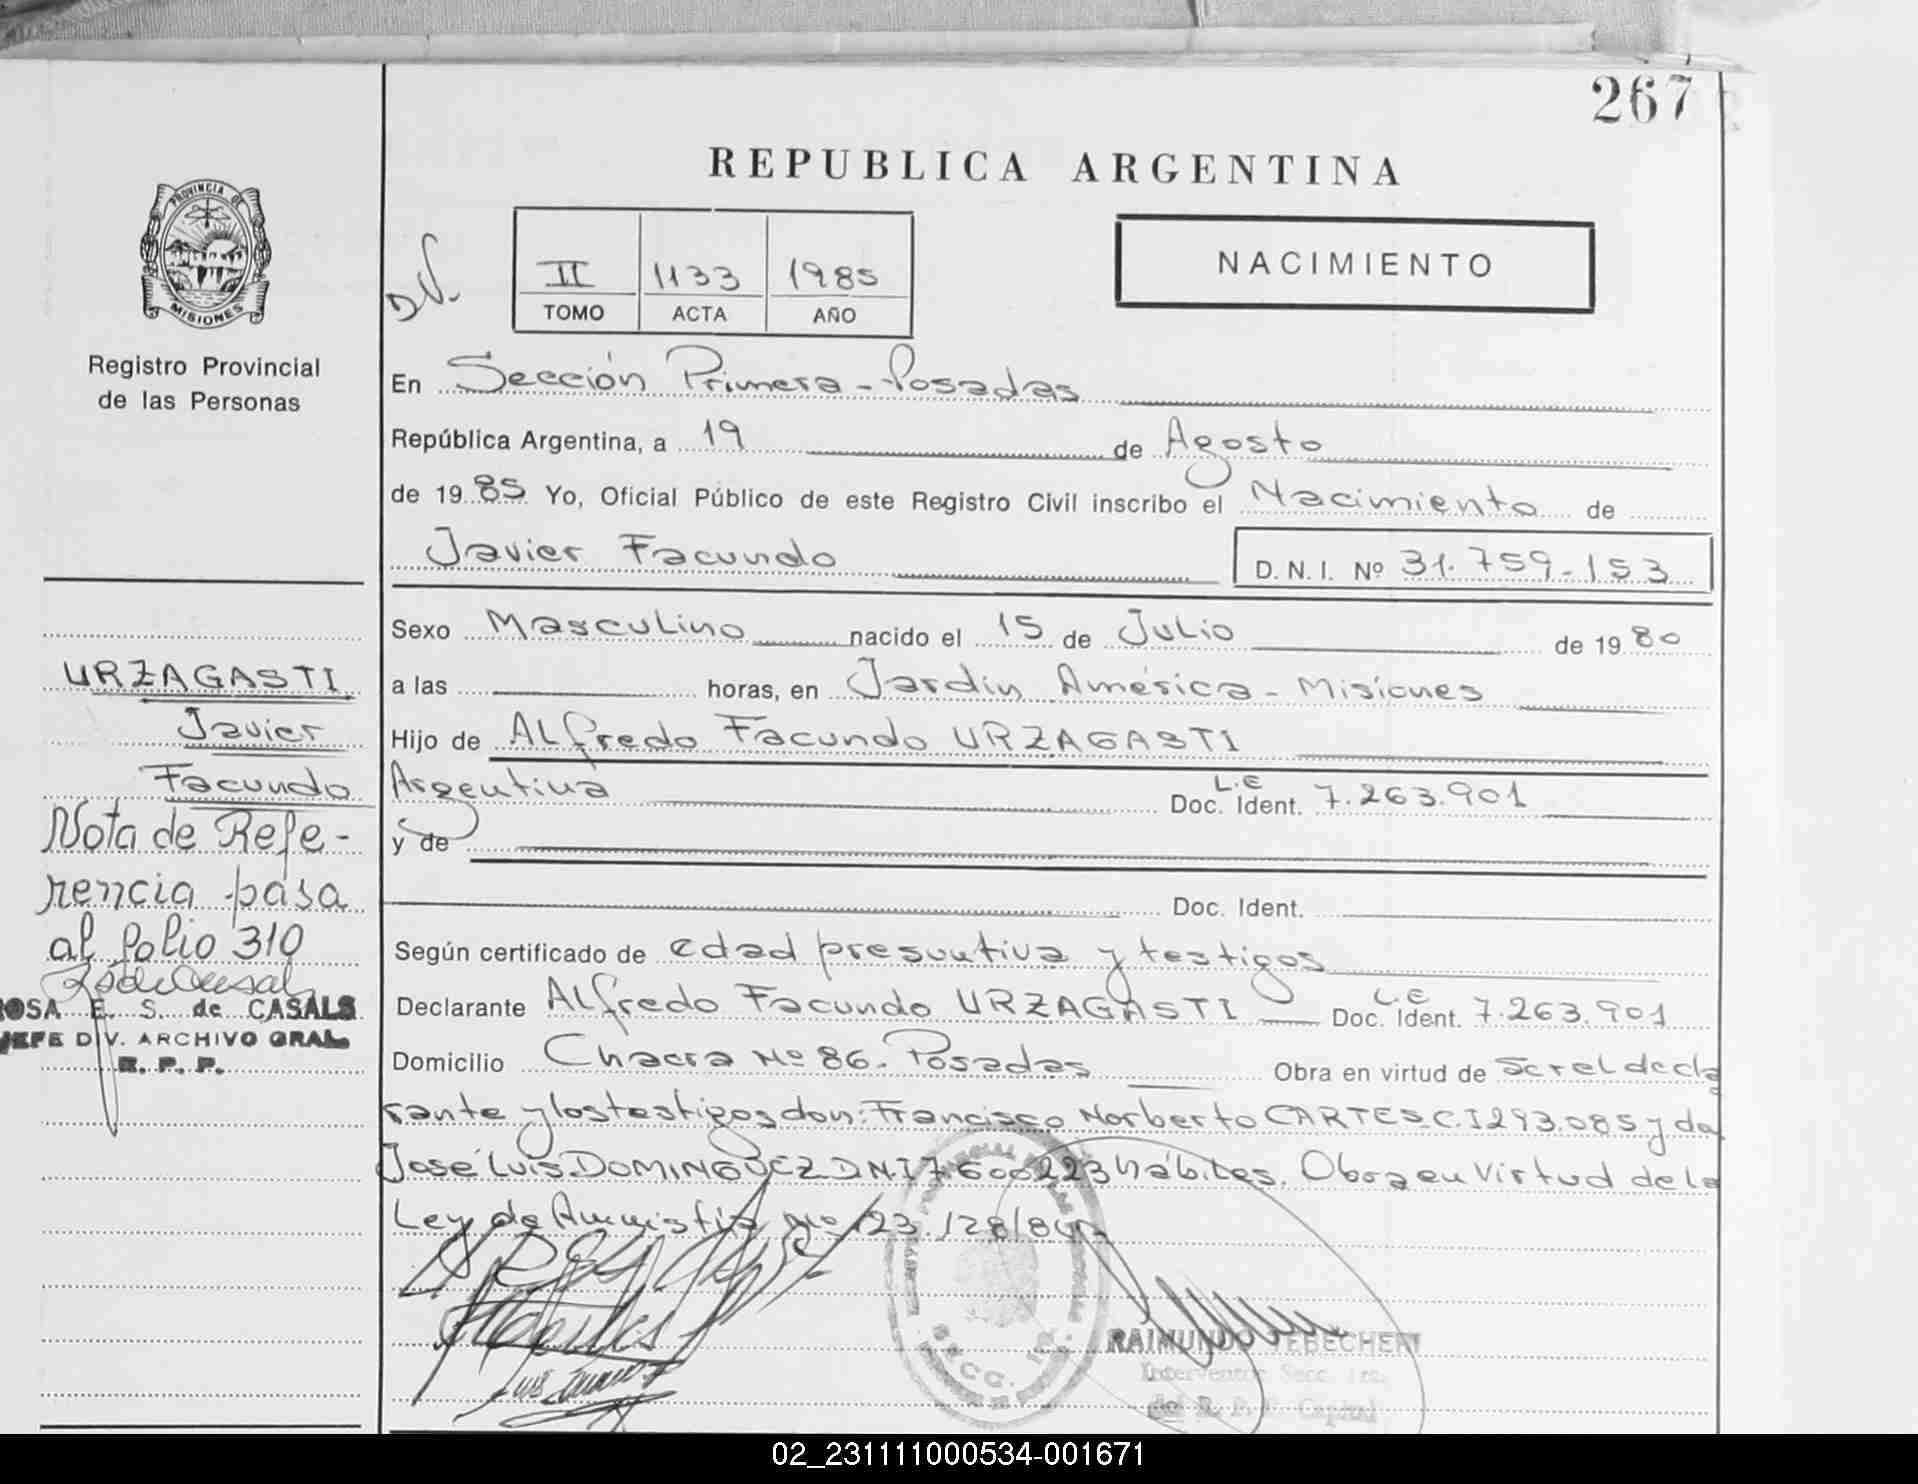 267
REPUBLICA ARGENTINA
PROVINCIA DE
MISIONES
Registro Provincial
de las Personas
II 1133 1985
TOMO ACTA AÑO
NACIMIENTO
En Sección Primera - Posadas
República Argentina, a 19 de Agosto
de 1985 Yo, Oficial Público de este Registro Civil inscribo el Nacimiento de
Javier Facundo D. N. I. Nº 31.759-153
Sexo Masculino nacido el 15 de Julio de 1980
a las horas, en Jardin América - Misiones
Hijo de ALfredo Facundo URZAGASTI
Argentina Doc. Ident. L.E 7.263.901
y de
Doc. Ident.
Según certificado de edad presuntiva y testigos
Declarante ALfredo Facundo URZAGASTI Doc. Ident. L.E 7.263.901
Domicilio Chacra Nº 86. Posadas Obra en virtud de ser el decla
rante y los testigos don: Francisco Norberto CARTES C.I 293.085 y don
José Luis DOMINGUEZ D.N.I 7600223 hábiles. Obra en Virtud de la
Ley de Amnistia Nº 23.128/84
URZAGASTI
Javier
Facundo
Nota de Refe-
rencia pasa
al folio 310
ROSA E. S. de CASALS
JEFE DIV. ARCHIVO GRAL
R. P. P.
SECC. 1ra.
RAIMUNDO TEBECHERI
Interventor Secc. 1ra.
del R. P. P. Capital
02_231111000534-001671